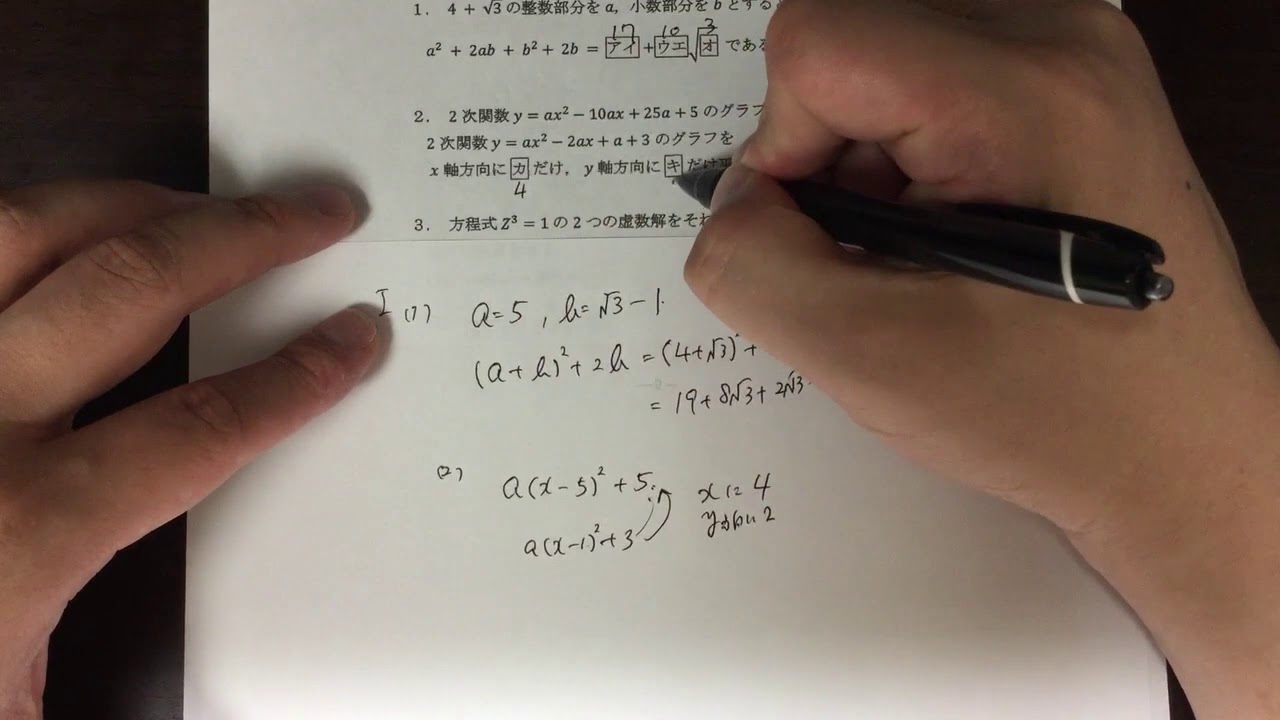 1. 4 + √3 の整数部分を a, 小数部分を b とすると
17 10 3
a² + 2ab + b² + 2b = アイ + ウエ √オ である
2. 2 次関数 y = ax² − 10ax + 25a + 5 のグラフ
2 次関数 y = ax² − 2ax + a + 3 のグラフを
x 軸方向に カ だけ, y 軸方向に キ だけ
4
3. 方程式 Z³ = 1 の 2 つの虚数解をそれ
I (1) a = 5 , b = √3 − 1
(a + b)² + 2b = (4 + √3)² +
= 19 + 8√3 + 2√3
(2) a(x − 5)² + 5 x に 4
a(x − 1)² + 3 y 2